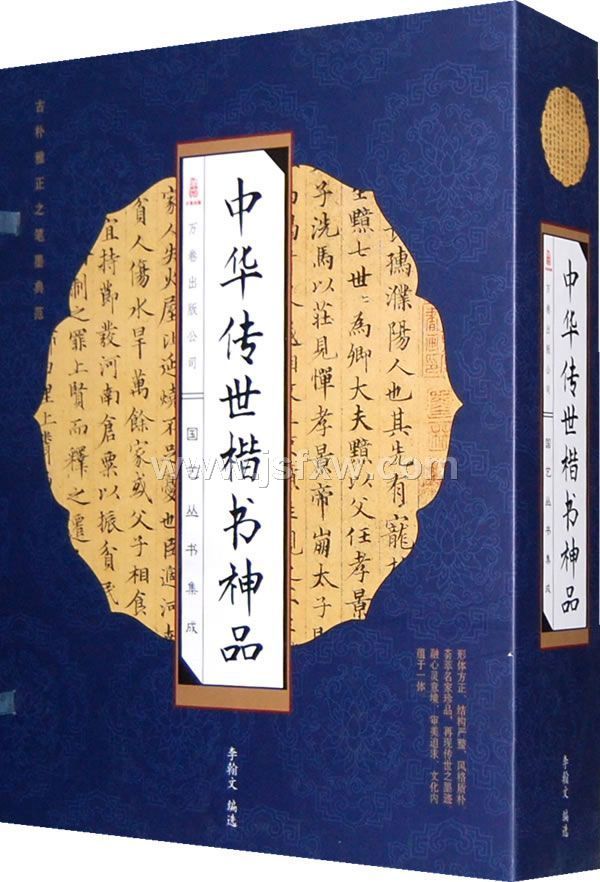 古朴雅正之笔墨典范
中华传世楷书神品
万卷出版公司
国艺丛书集成
長孺濮陽人也其先有寵
至黯七世〻為卿大夫黯以父任孝景
子洗馬以莊見憚孝景帝崩太子
家人失火屋比延燒不足憂也臣過河南
貧人傷水旱萬餘家或父子相食
宜持節發河南倉粟以振貧民
制之罪上賢而釋之遷
形体方正、结构严整、风格质朴
荟萃名家珍品，再现传世之墨迹
融心灵意境、审美追求、文化内
蕴于一体
李翰文 编选
中华传世楷书神品
万卷出版公司
国艺丛书集成
李翰文 编选
www.jsfxw.com